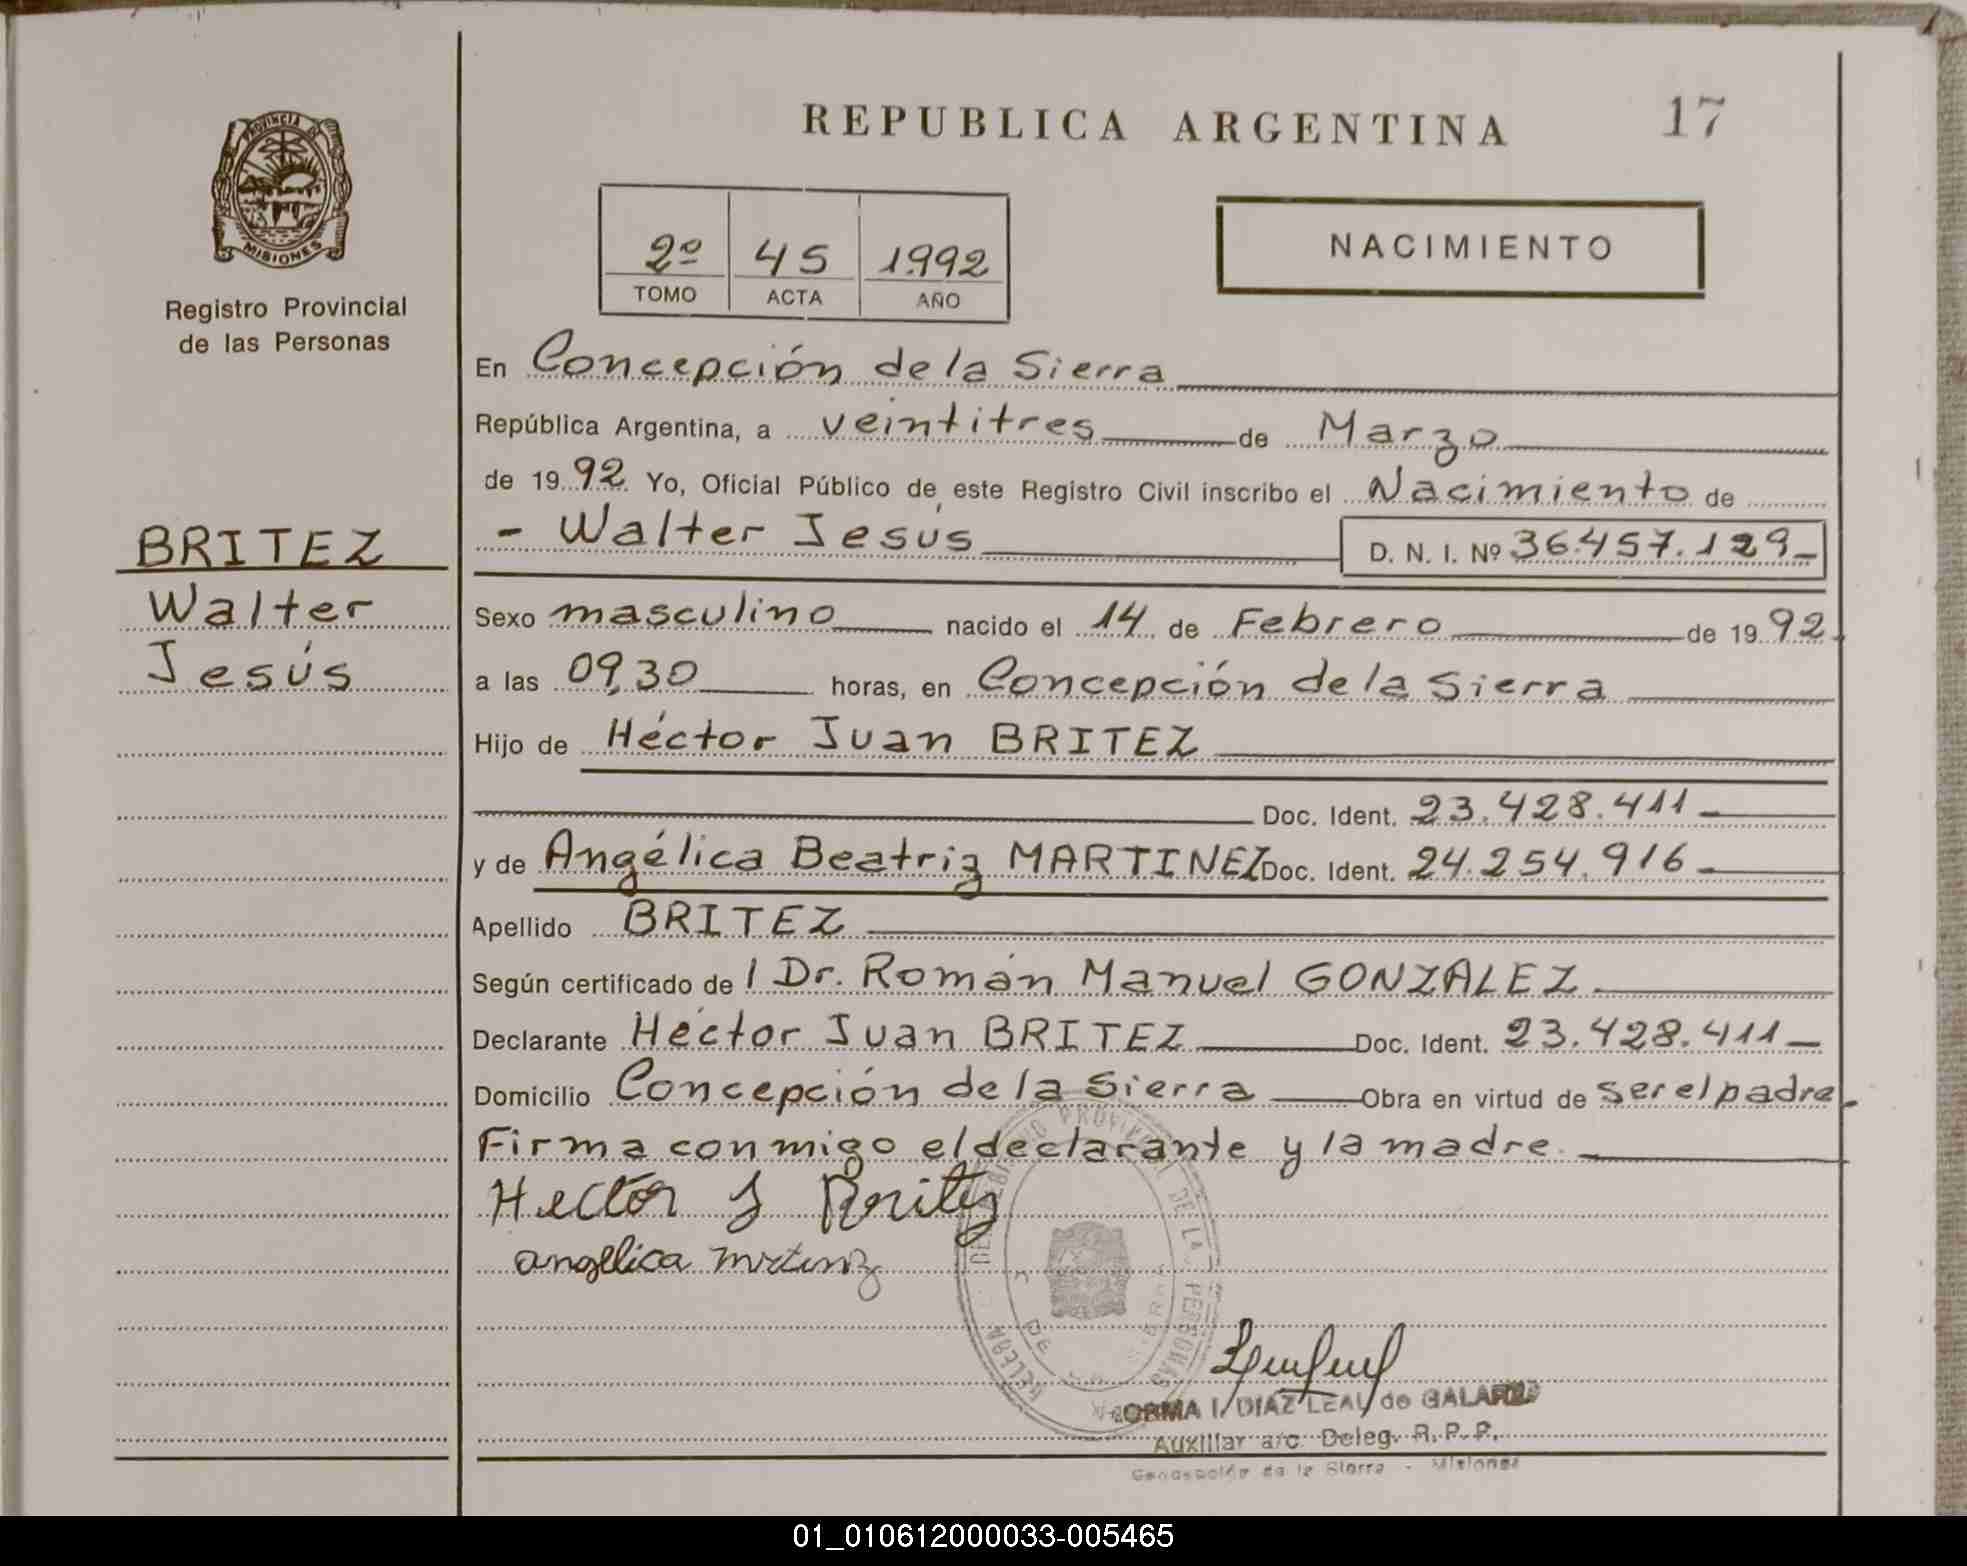 REPUBLICA ARGENTINA
17
PROVINCIA DE
MISIONES
Registro Provincial
de las Personas
2º 45 1992
TOMO ACTA AÑO
NACIMIENTO
BRITEZ
Walter
Jesús
En Concepción de la Sierra
República Argentina, a veintitres de Marzo
de 1992 Yo, Oficial Público de este Registro Civil inscribo el Nacimiento de
- Walter Jesús D. N. I. Nº 36.457.129-
Sexo masculino nacido el 14 de Febrero de 1992
a las 09,30 horas, en Concepción de la Sierra
Hijo de Héctor Juan BRITEZ
Doc. Ident. 23.428.411-
y de Angélica Beatriz MARTINEZ Doc. Ident. 24.254.916-
Apellido BRITEZ
Según certificado de l Dr. Román Manuel GONZALEZ
Declarante Héctor Juan BRITEZ Doc. Ident. 23.428.411-
Domicilio Concepción de la Sierra Obra en virtud de ser el padre.
Firma conmigo el declarante y la madre.
Hector J Britez
angelica
NORMA I. DIAZ LEAL de GALARZA
Auxiliar a/c. Deleg. R. P. P.
Concepción de la Sierra - Misiones
01_010612000033-005465